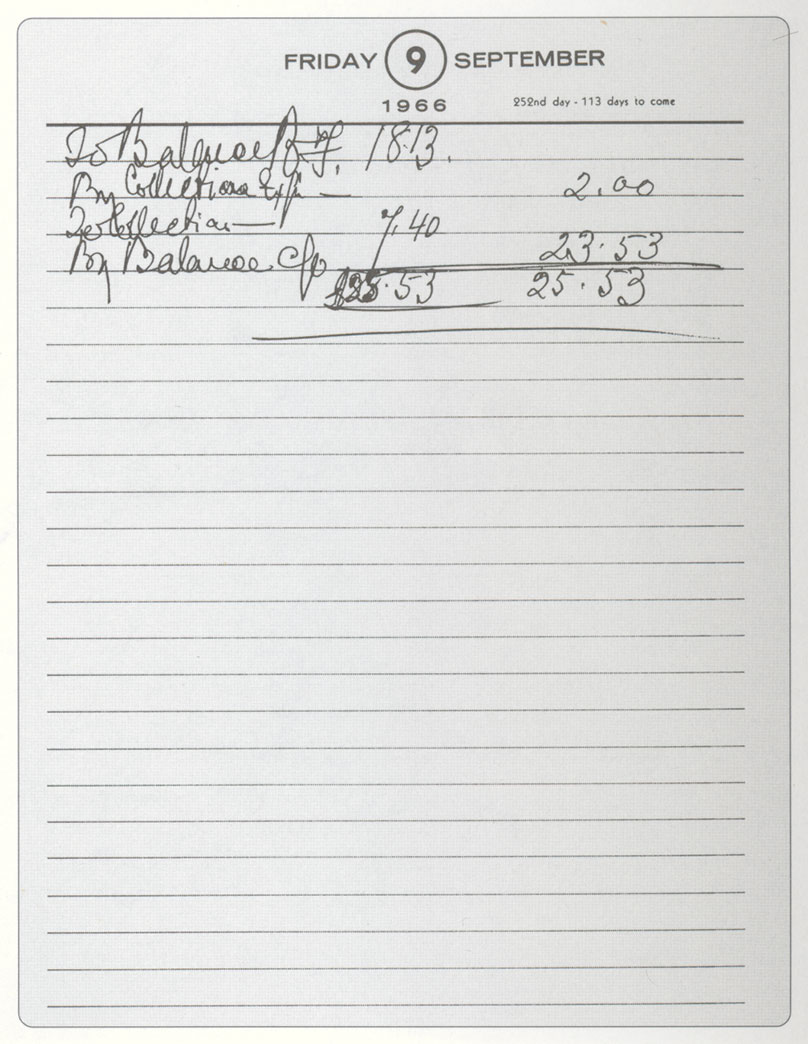 FRIDAY 9 SEPTEMBER
1966 252nd day - 113 days to come
To Balance B.F. 18.13.
By Collections Exp. — 2.00
To Collection — 7.40
By Balance C/o 23.53
$25.53 25.53